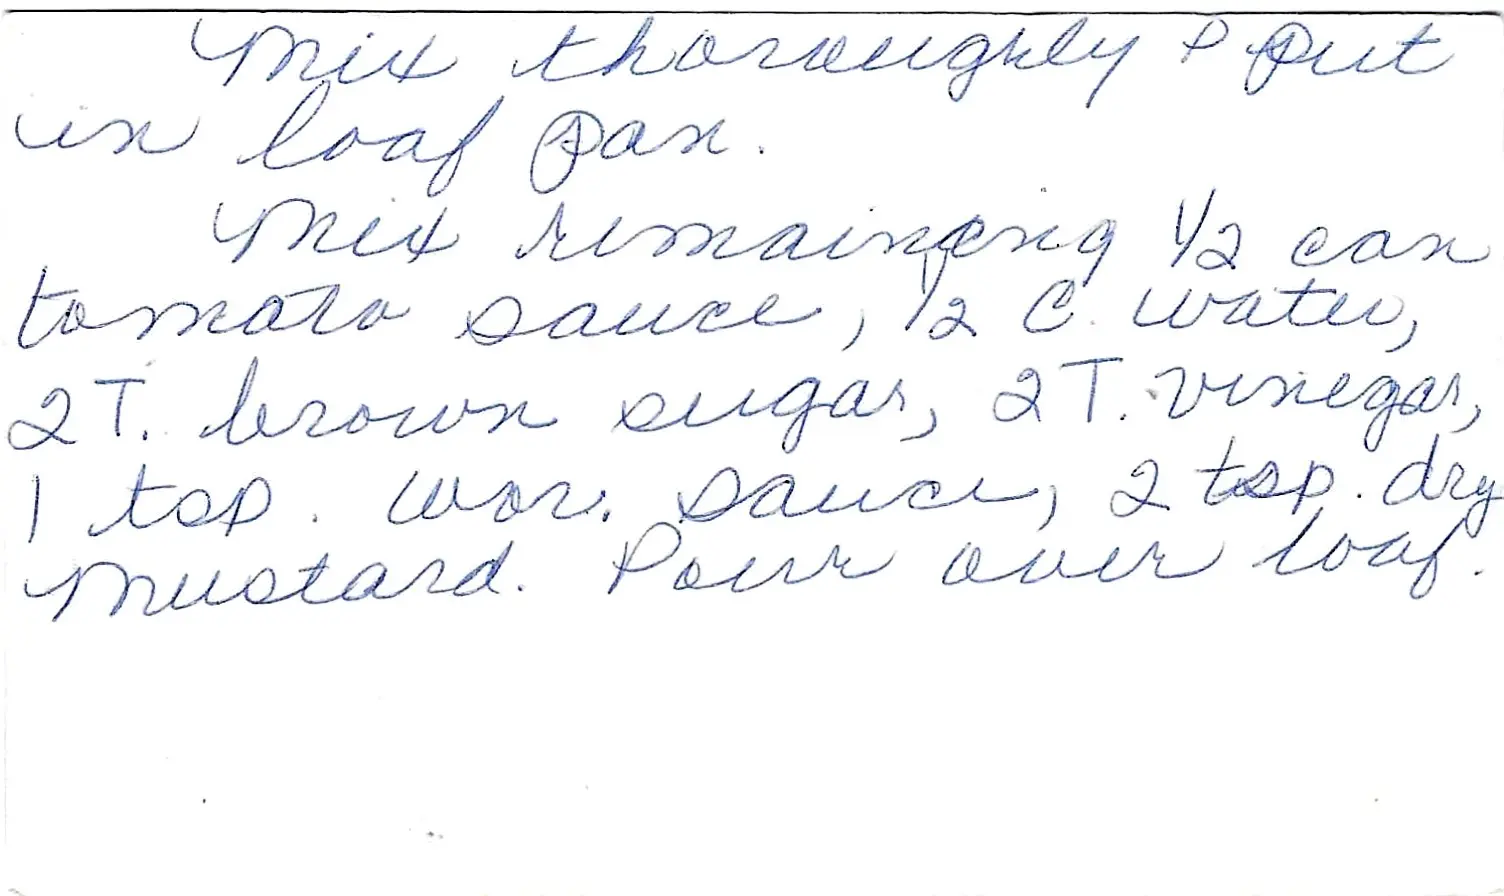 Mix thoroughly & put
in loaf pan.
Mix remaining 1/2 can
tomato sauce, 1/2 C. water,
2 T. brown sugar, 2 T. vinegar,
1 tsp. Wor. sauce, 2 tsp. dry
mustard. Pour over loaf.